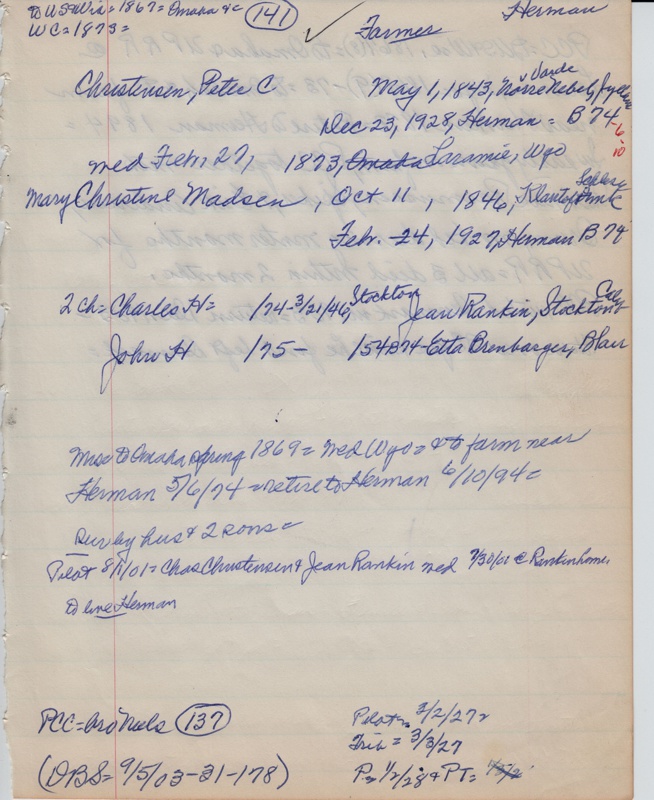 to US=Wis=1867=Omaha &c (141) Herman
WC=1873= Farmer
Christensen, Peter C May 1, 1843, Nörre Nebel, Varde
Dec 23, 1928, Herman = B 74-6
10
wed Feb. 27, 1873, Omaha Laramie, Wyo
Mary Christine Madsen, Oct 11, 1846,
Feb. 24, 1927, Herman B 74
2 ch= Charles H= /74-3/21/46, Stockton Jean Rankin, Stockton Calif
John H /75- /54 B74-Etta Brenbarger, Blair
Mrs to Omaha spring 1869= wed Wyo= & to farm near
Herman 5/6/74 = retire to Herman 6/10/94=
Sur by hus & 2 sons=
Pilot 8/1/01= Chas Christensen & Jean Rankin wed 7/30/01 @ Rankin home,
to live Herman
PCC=bro Neels (137) Pilot= 3/2/27
Trib = 3/3/27
(DBS= 9/5/03-31-178) P= 1/2/28 & PT=